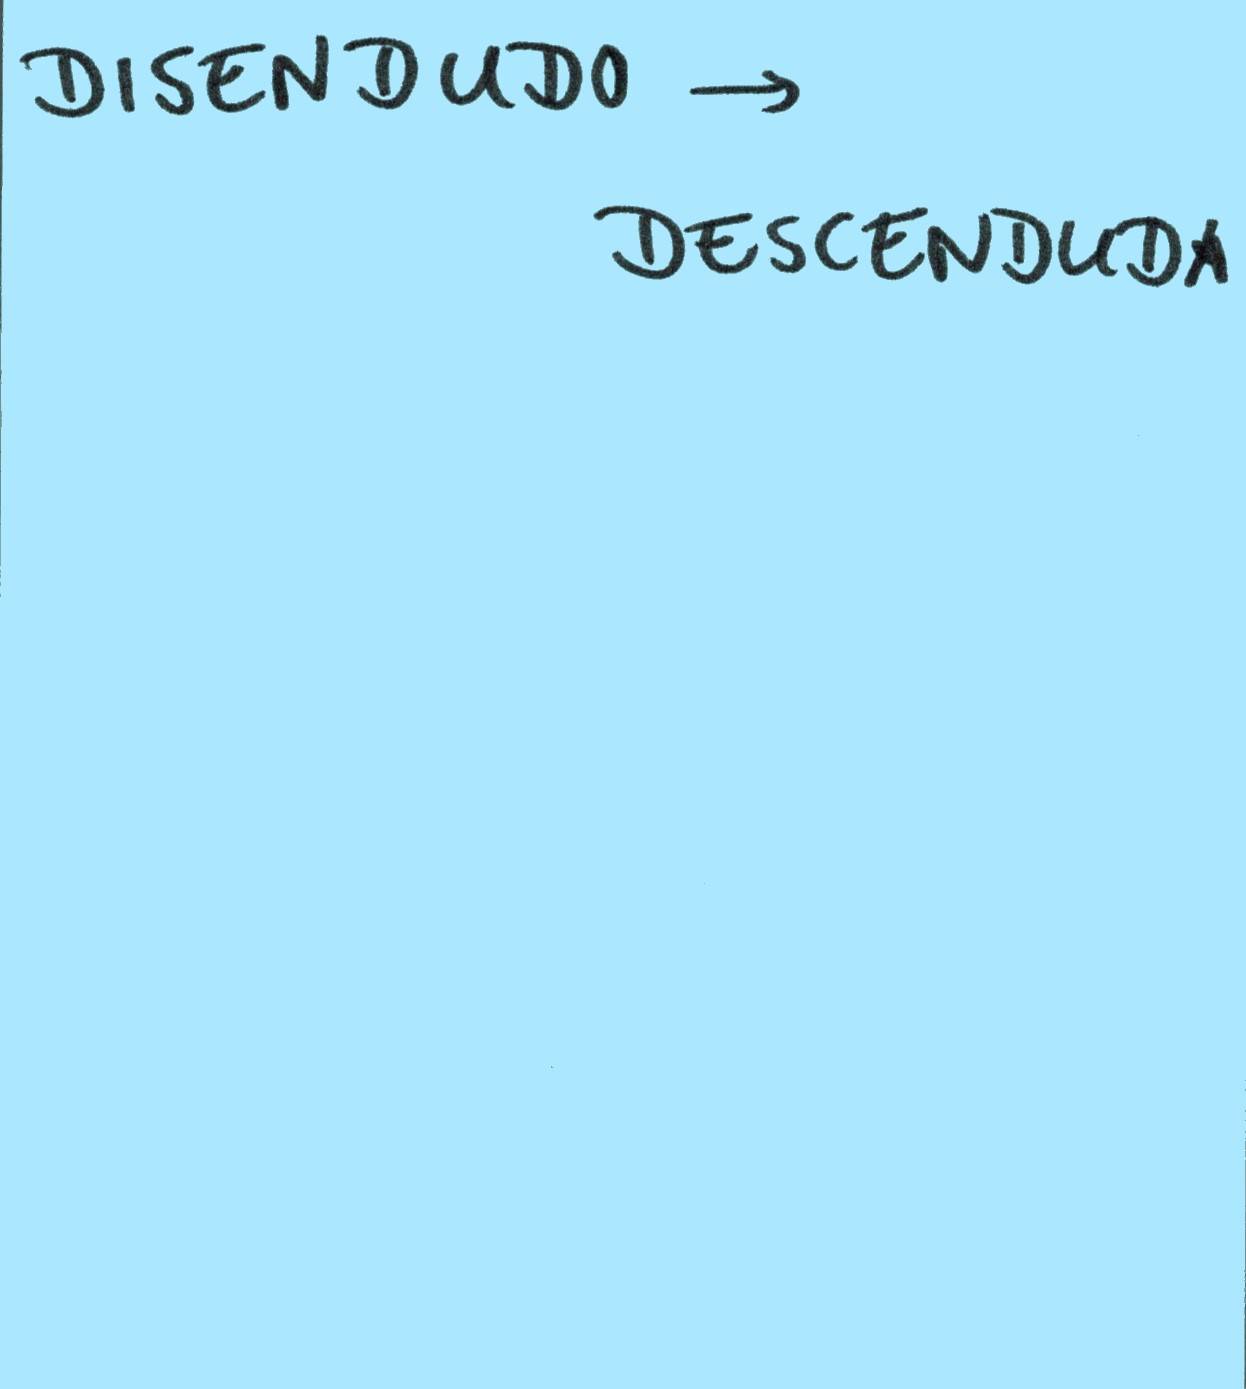 DISENDUDO →
DESCENDUDA